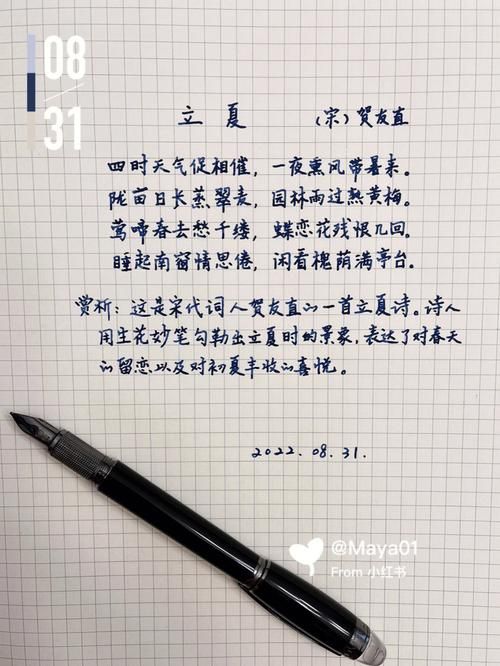 08
31
立夏 （宋）贺友直
四时天气促相催，一夜熏风带暑来。
陇亩日长蒸翠麦，园林雨过熟黄梅。
莺啼春去愁千缕，蝶恋花残恨几回。
睡起南窗情思倦，闲看槐荫满亭台。
赏析：这是宋代词人贺友直的一首立夏诗。诗人
用生花妙笔勾勒出立夏时的景象，表达了对春天
的留恋以及对初夏丰收的喜悦。
2022.08.31.
@Maya01
From 小红书